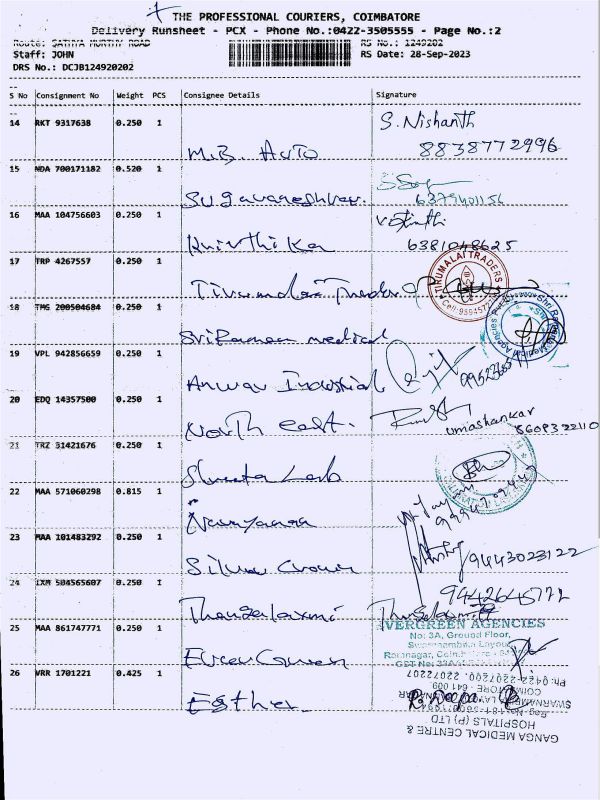 THE PROFESSIONAL COURIERS, COIMBATORE
Delivery Runsheet - PCX - Phone No.:0422-3505555 - Page No.:2
Route: SATHYA MURTHY ROAD RS No.: 1249202
Staff: JOHN RS Date: 28-Sep-2023
DRS No.: DCJB124920202
S No Consignment No Weight PCS Consignee Details Signature
14 RKT 9317638 0.250 1 S. Nishanth
M.B. Auto 8838772996
15 NDA 700171182 0.520 1
6379401156
16 MAA 104756603 0.250 1
Kruthika 6381048625
17 TRP 4267557 0.250 1 TIRUMALAI TRADERS
Tirumalai Traders
18 TMG 200504684 0.250 1
Sri Raman medical
19 VPL 942856659 0.250 1
Anwar Industrial
20 EDQ 14357500 0.250 1
North east. umashankar 8609322110
21 TRZ 31421676 0.250 1
Shweta Lab
22 MAA 571060298 0.815 1
Narayanan
23 MAA 101483292 0.250 1
Silver Crown 9443023122
24 IXM 504565607 0.250 1 9442645772
Thangalaxmi
25 MAA 861747771 0.250 1 EVERGREEN AGENCIES
No: 3A, Ground Floor,
Evergreen
26 VRR 1701221 0.425 1 Ph: 0422-2207200, 22072207
COIMBATORE - 641 009
Esther R. Deepa
GANGA MEDICAL CENTRE &
HOSPITALS (P) LTD